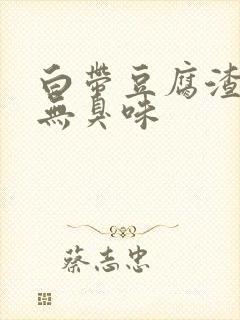 白帶豆腐渣
無臭味
蔡志忠